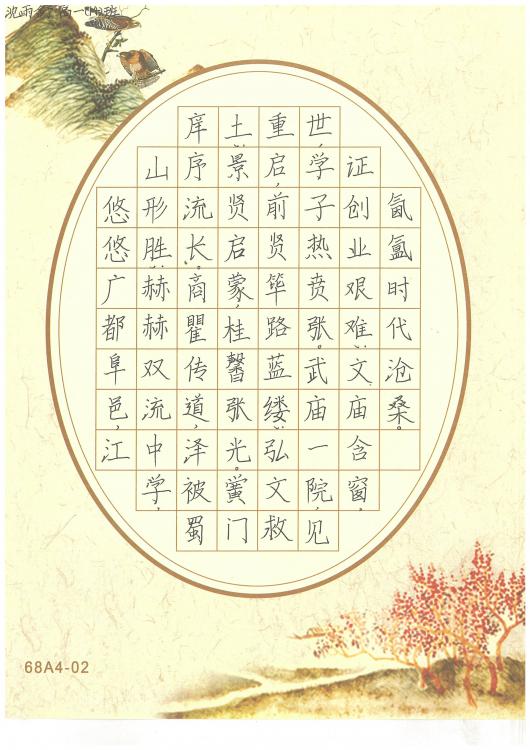 沈雨 高一 班
悠悠广都阜邑,江
山形胜;赫赫双流中学,
庠序流长。商瞿传道,泽被蜀
土;景贤启蒙,桂馨张光。黉门
重启,前贤筚路蓝缕;弘文救
世,学子热贲张。武庙一院,见
证创业艰难;文庙含窗,
氤氲时代沧桑。
68A4-02